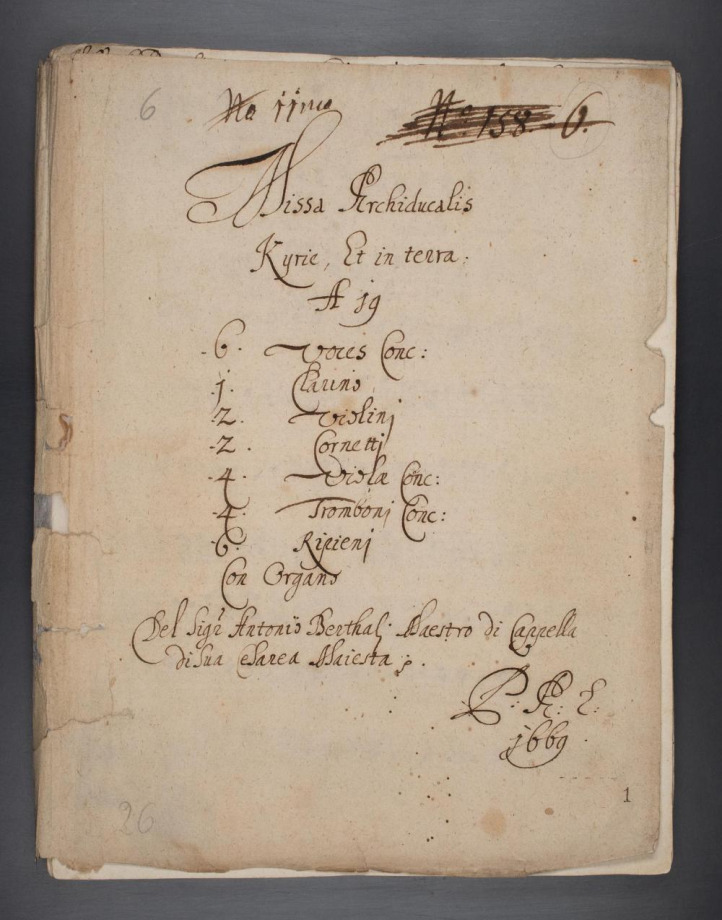 6 No 11mo No. 158 6.
Missa Archiducalis
Kyrie, Et in terra.
A 19
6. Voces Conc:
1. Clarino
2. Violini
2. Cornetti
4. Violæ Conc:
4. Tromboni Conc:
6. Ripieni
Con Organo
Del Sigr Antonio Berthali Maestro di Cappella
di Sua Cesarea Maiesta
P: R: E:
1669
1
26